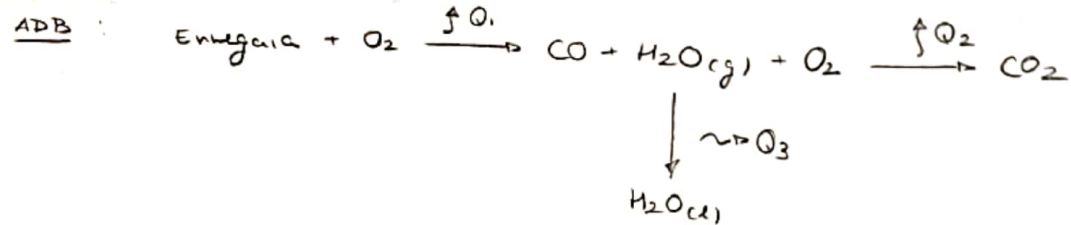 ADB : Erregaia + O2 → Q1 CO + H2O(g) + O2 → Q2 CO2
↓ ~> Q3
H2O(l)